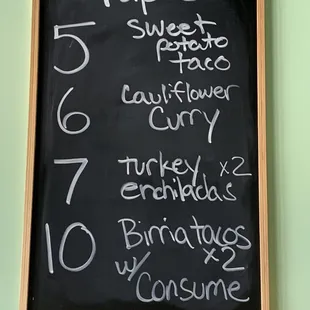 5 sweet
potato
taco
6 Cauliflower
Curry
7 turkey x2
enchiladas
10 Birria tacos
x2
w/
Consume